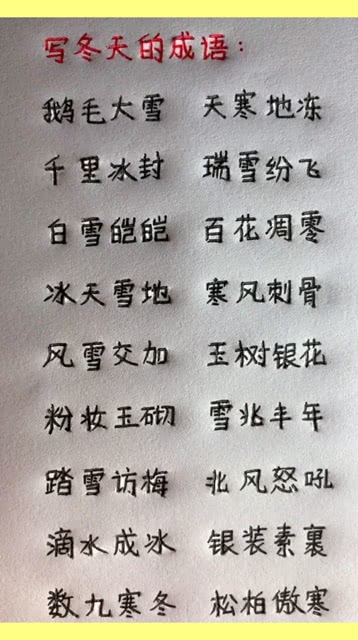 写冬天的成语：
鹅毛大雪 天寒地冻
千里冰封 瑞雪纷飞
白雪皑皑 百花凋零
冰天雪地 寒风刺骨
风雪交加 玉树银花
粉妆玉砌 雪兆丰年
踏雪访梅 北风怒吼
滴水成冰 银装素裹
数九寒冬 松柏傲寒